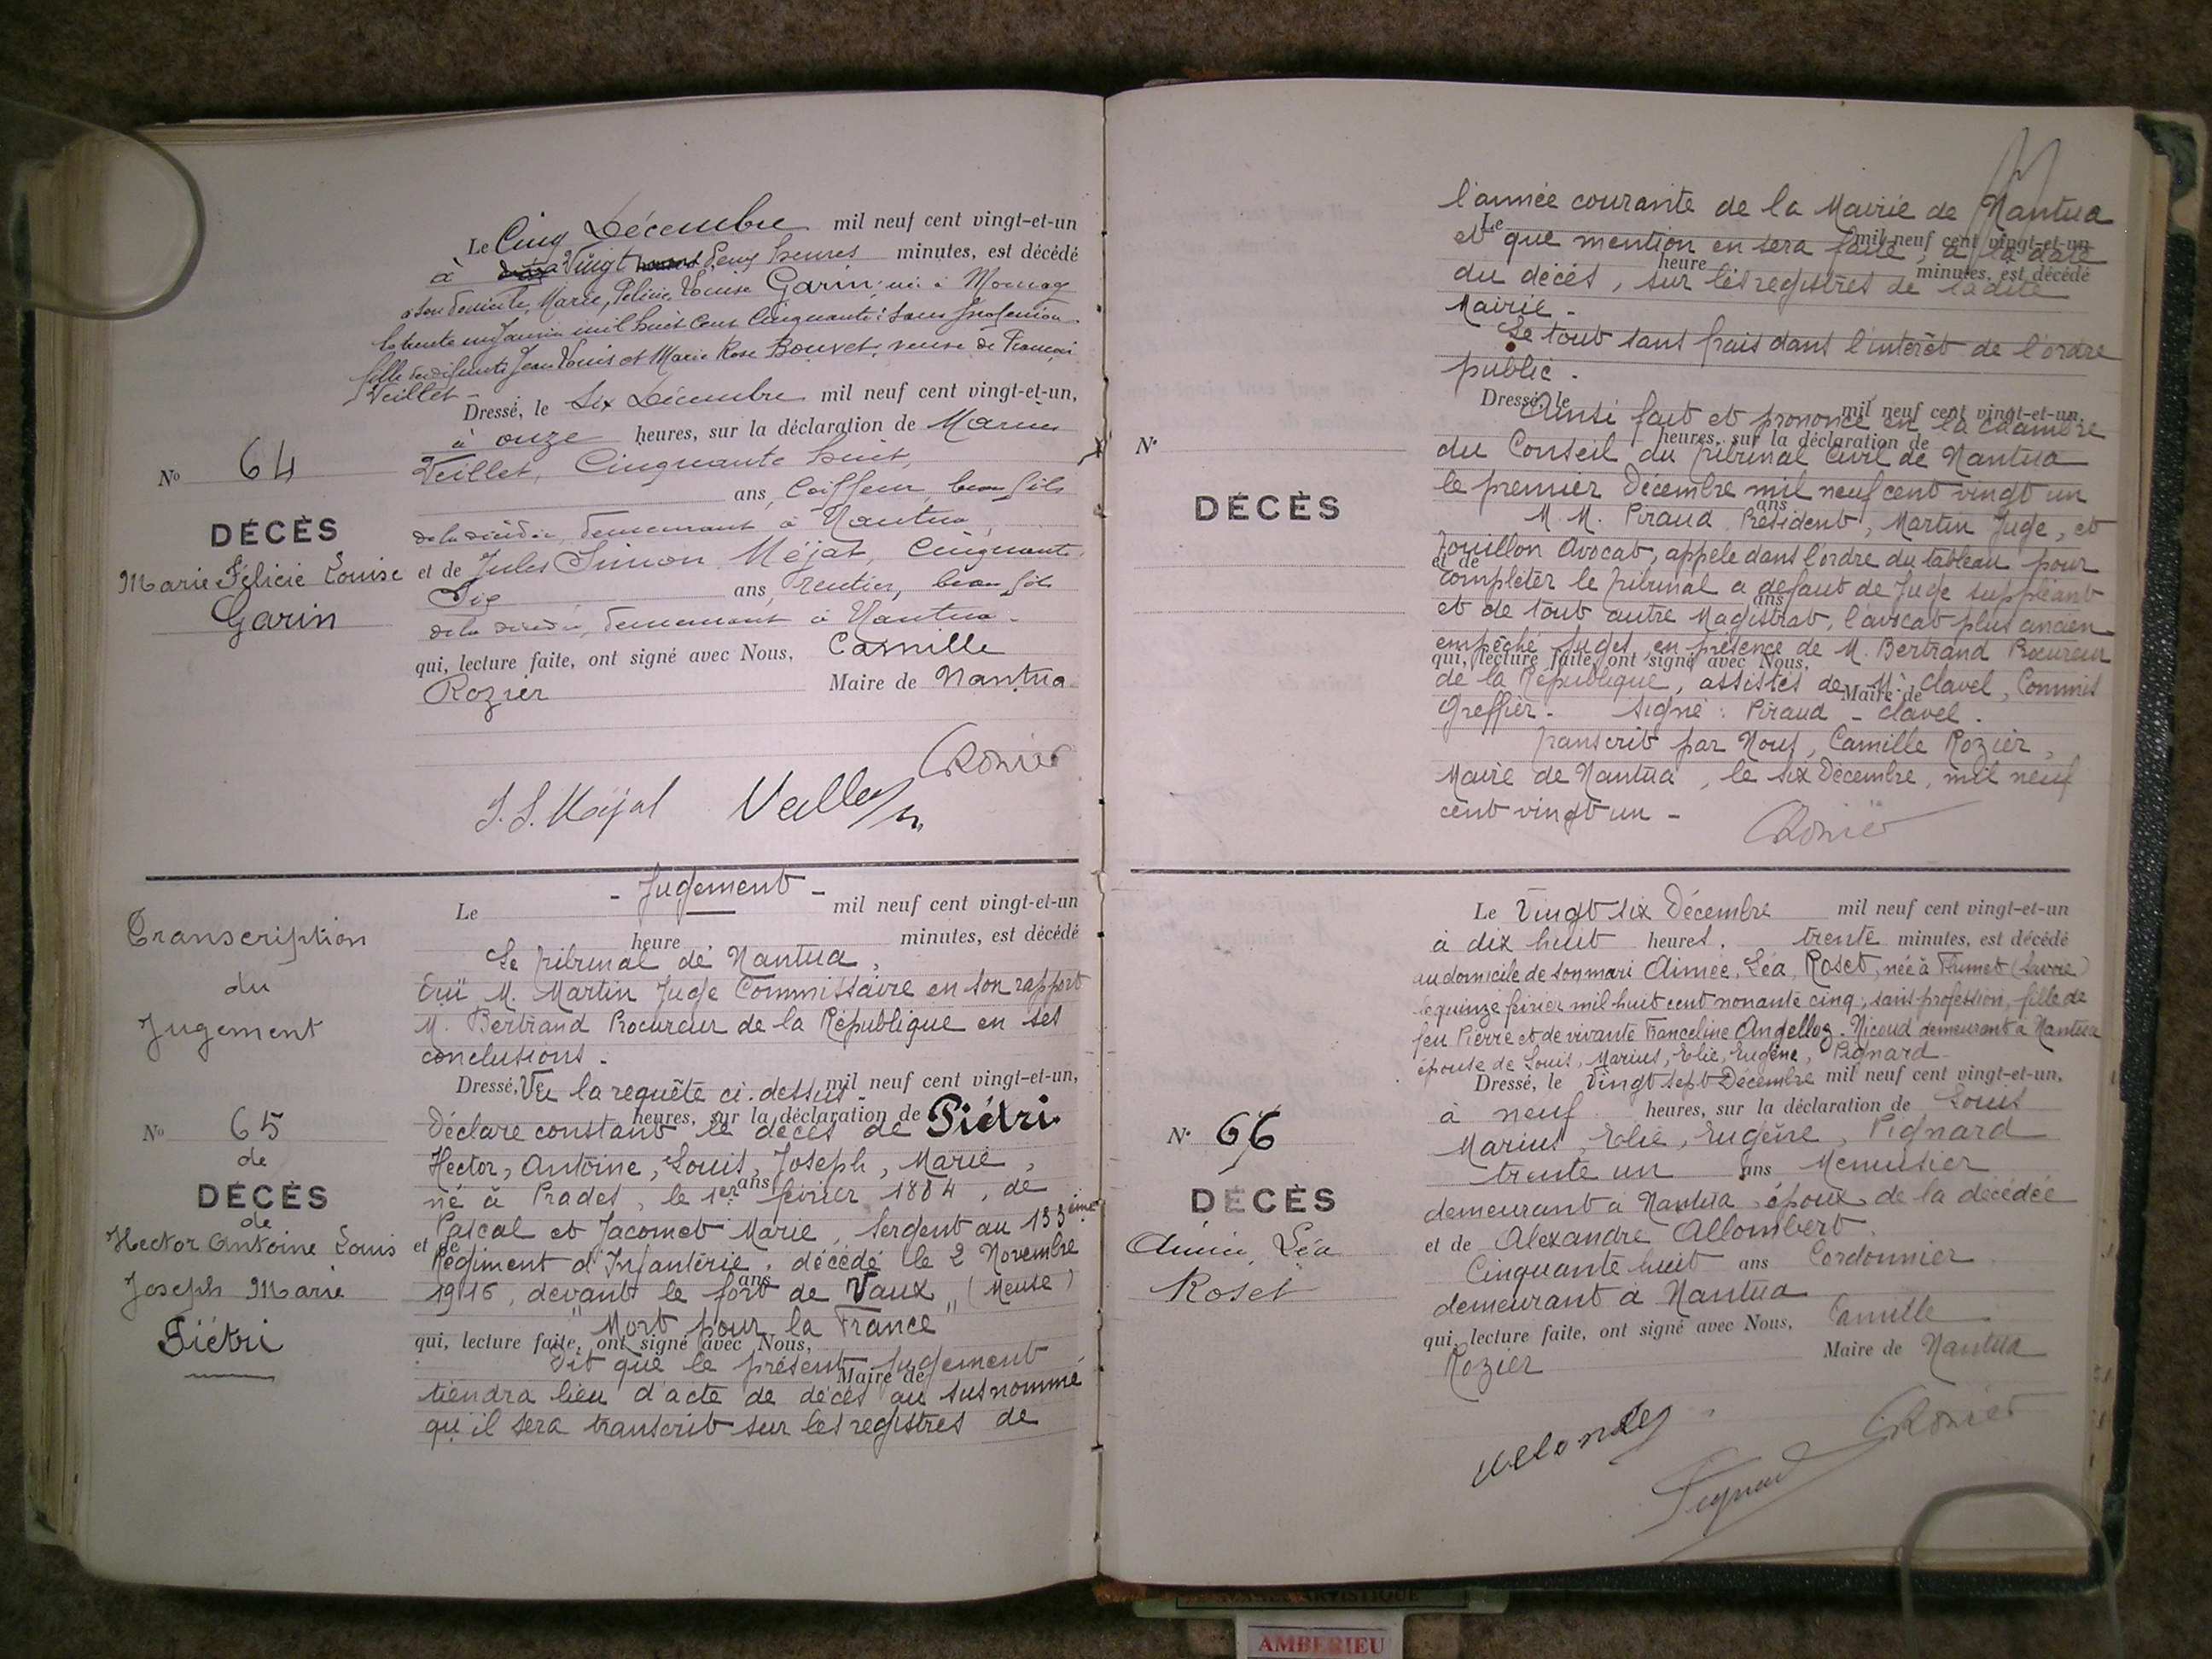 Le Cinq Décembre mil neuf cent vingt-et-un
à Vingt Deux heures minutes, est décédé
à son domicile, Marie, Félicie, Louise Garin, née à Mornay
le trente un Janvier mil huit cent cinquante, sans profession
fille de défunts Jean Louis et Marie Rose Bouvet, veuve de François
Veillet -
Dressé, le Six Décembre mil neuf cent vingt-et-un,
à onze heures, sur la déclaration de Marius
Veillet, Cinquante huit,
ans, Coiffeur, beau fils
de la décédée, demeurant à Nantua,
et de Jules Simon Méjat, Cinquante
Six ans, rentier, beau fils
de la décédée, demeurant à Nantua -
qui, lecture faite, ont signé avec Nous, Camille
Rozier Maire de Nantua
CRozier
J. S. Méjat Veillet
No 64
DÉCÈS
Marie Félicie Louise
Garin
Transcription
du
Jugement
No 65
de
DÉCÈS
de
Hector Antoine Louis
Joseph Marie
Piétri
- Jugement -
Le mil neuf cent vingt-et-un
heure minutes, est décédé
Le Tribunal de Nantua,
Ouï M. Martin Juge Commissaire en son rapport
M. Bertrand Procureur de la République en ses
conclusions -
Dressé, Vu la requête ci-dessus - mil neuf cent vingt-et-un,
heures, sur la déclaration de
Déclare constant le décès de Piétri
Hector, Antoine, Louis, Joseph, Marie,
né à Prades, le 1er février 1884, de ans
Pascal et Jacomet Marie, Sergent au 133ème
et de
Régiment d'Infanterie, décédé le 2 Novembre
1916, devant le fort de Vaux (Meuse) ans
"Mort pour la France"
qui, lecture faite, ont signé avec Nous,
Dit que le présent jugement
Maire de
tiendra lieu d'acte de décès au susnommé
qu'il sera transcrit sur les registres de
l'année courante de la Mairie de Nantua
Le mil neuf cent vingt-et-un
et que mention en sera faite, à la date
heure minutes, est décédé
du décès, sur les registres de ladite
Mairie -
Le tout sans frais dans l'intérêt de l'ordre
public -
Dressé, le mil neuf cent vingt-et-un,
Ainsi fait et prononcé en la Chambre
heures, sur la déclaration de
du Conseil du Tribunal Civil de Nantua
le premier Décembre mil neuf cent vingt un
ans
M. M. Piraud Président, Martin Juge, et
Touillon Avocat, appelé dans l'ordre du tableau pour
et de
compléter le Tribunal à défaut de Juge suppléant
ans
et de tout autre Magistrat, l'avocat plus ancien
empêché Juges, en présence de M. Bertrand Procureur
qui, lecture faite, ont signé avec Nous,
de la République, assistés de M. Clavel, Commis
Maire de
Greffier - Signé : Piraud - Clavel -
Transcrit par Nous, Camille Rozier,
Maire de Nantua, le six Décembre, mil neuf
cent vingt un -
CRozier
N°
DÉCÈS
Le Vingt six Décembre mil neuf cent vingt-et-un
à dix huit heures, trente minutes, est décédé
au domicile de son mari Aimée, Léa, Roset, née à Flumet (Savoie)
le quinze février mil huit cent nonante cinq, sans profession, fille de
feu Pierre et de vivante Franceline Angelloz-Nicoud demeurant à Nantua
épouse de Louis, Marius, Elie, Eugène, Pignard -
Dressé, le Vingt sept Décembre mil neuf cent vingt-et-un,
à neuf heures, sur la déclaration de Louis
Marius, Elie, Eugène, Pignard
trente un ans Menuisier
demeurant à Nantua époux de la décédée
et de Alexandre Allombert
Cinquante huit ans Cordonnier
demeurant à Nantua
qui, lecture faite, ont signé avec Nous, Camille
Rozier Maire de Nantua
CRozier
Pignard
N° 66
DÉCÈS
Aimée Léa
Roset
AMBERIEU